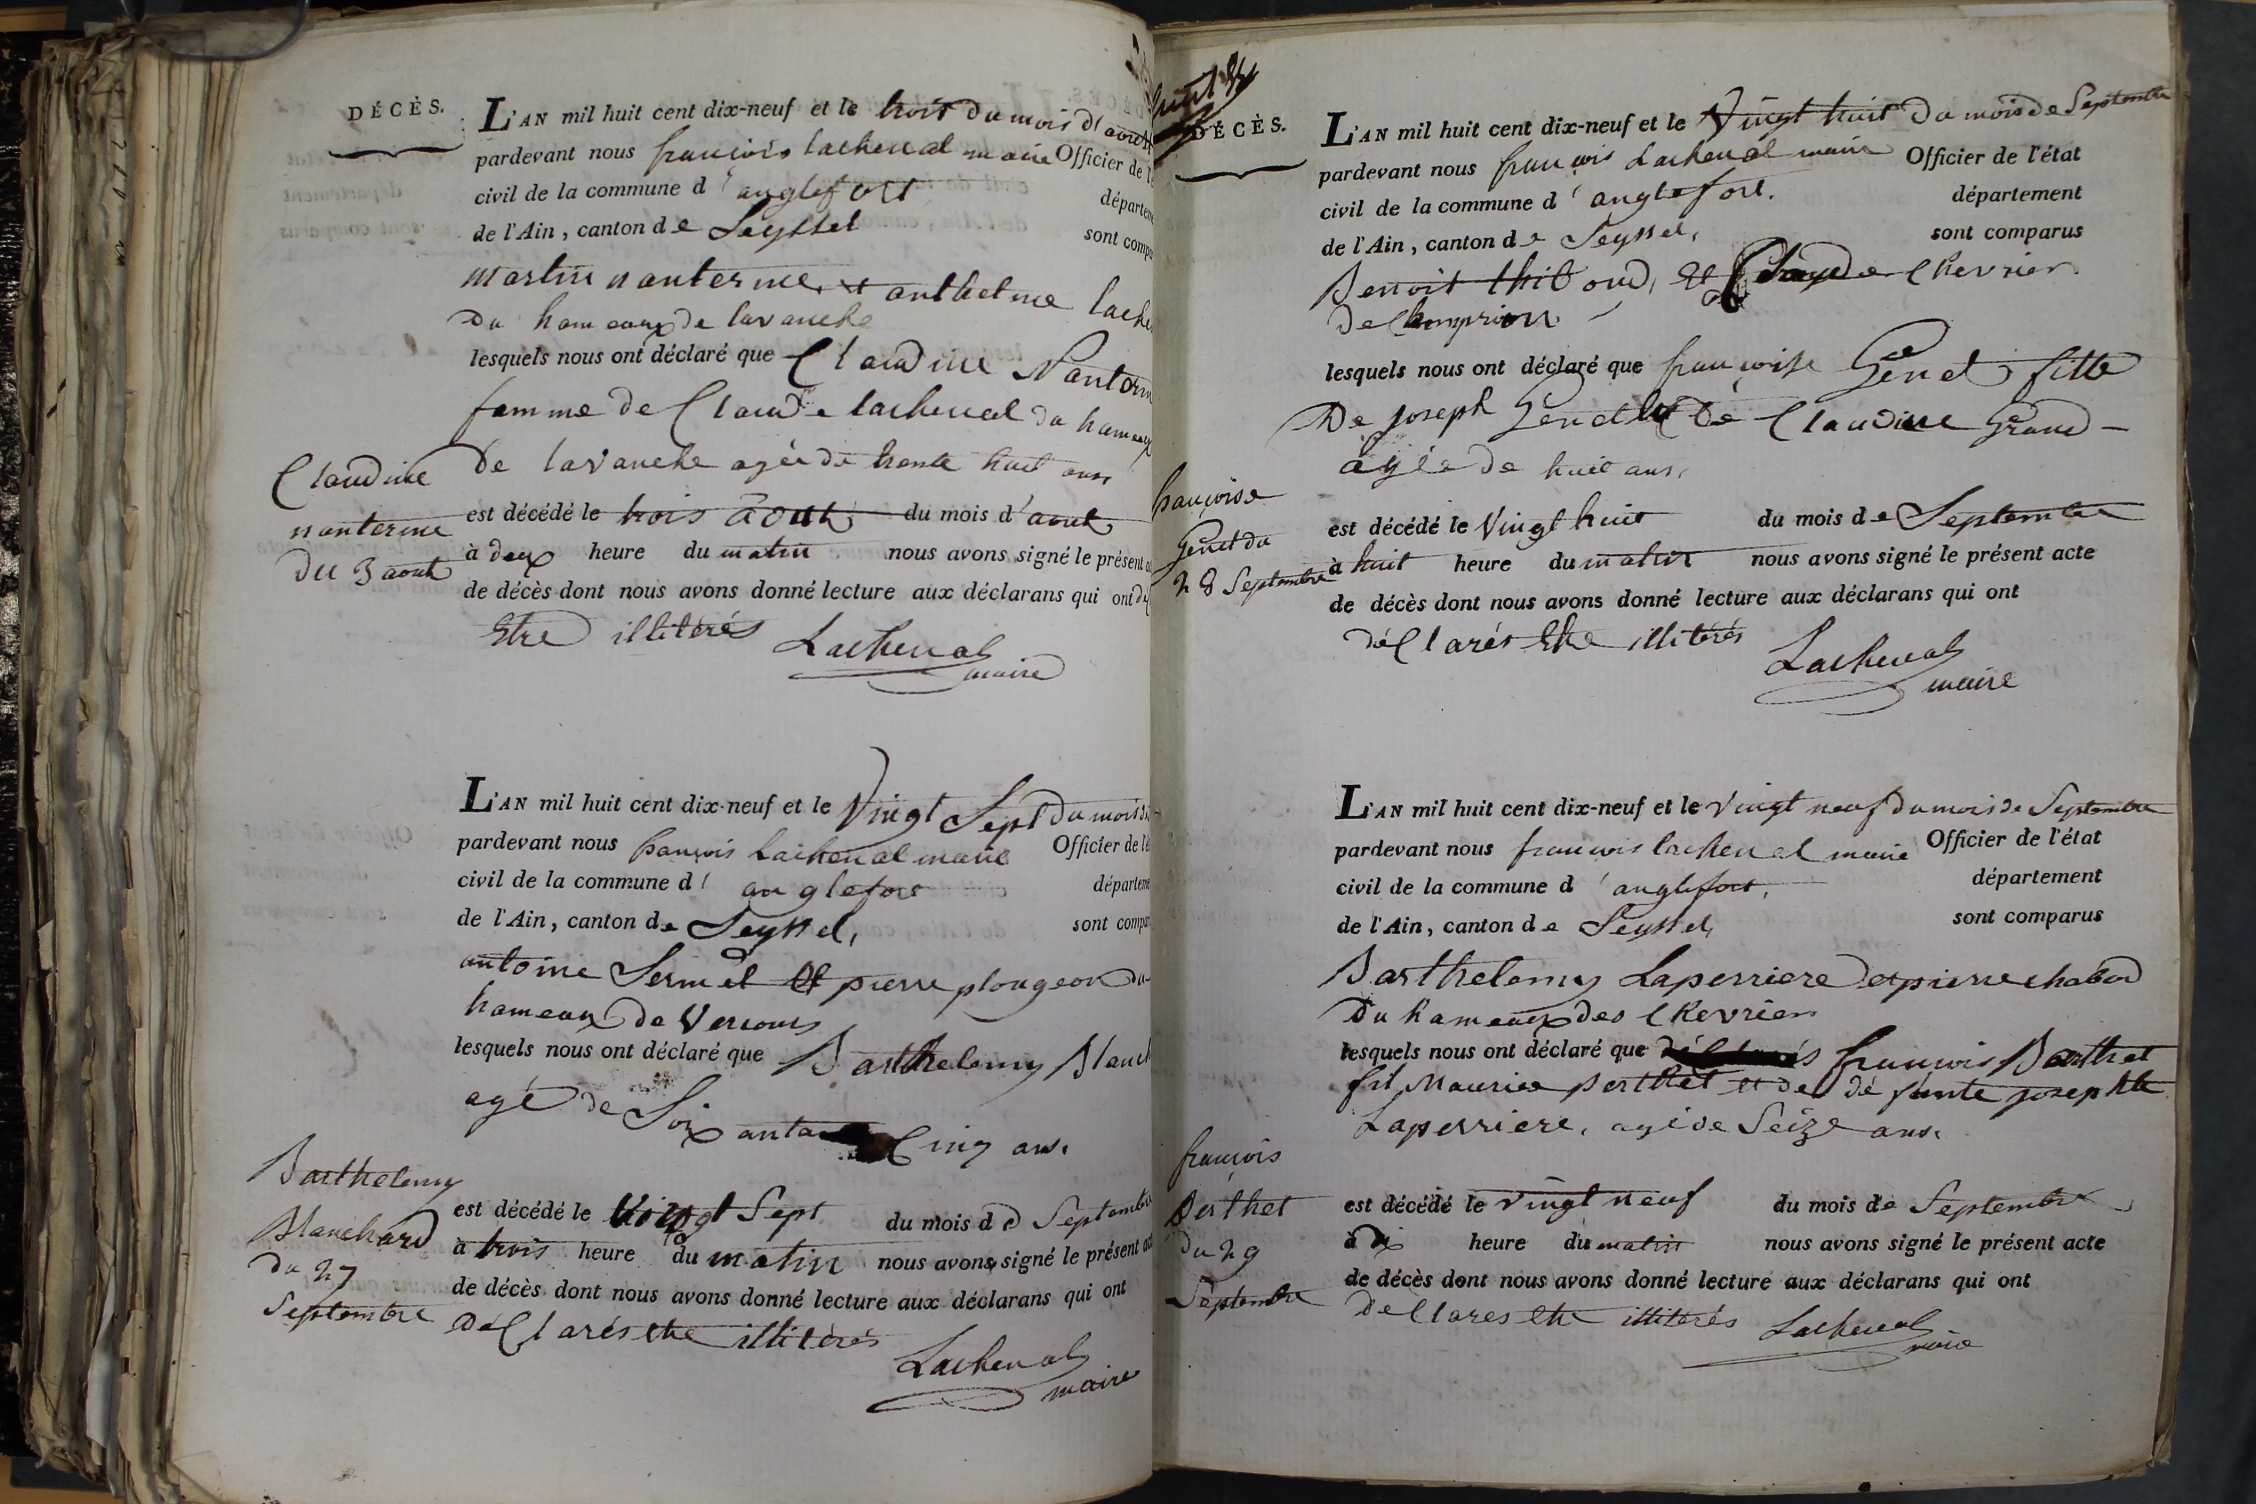 DÉCÈS.
L'AN mil huit cent dix-neuf et le trois du mois d'aout
pardevant nous françois lachenal maire Officier de l'
civil de la commune d'anglefort
départem
de l'Ain, canton de Seyssel
sont compa
martin nanterme et anthelme lache
du hameaux de lavanche
lesquels nous ont déclaré que Claudine Nanterm
femme de Claude lachenal du hameaux
de lavanche agée de trente huit ans
Claudine
nanterme
du 3 aout
est décédé le trois aout du mois d'aout
à deux heure du matin nous avons signé le présent a
de décès dont nous avons donné lecture aux déclarans qui ont dé
Etre illitérés
Lachenal
maire
L'AN mil huit cent dix-neuf et le Vingt Sept du mois de
pardevant nous françois lachenal maire Officier de l'é
civil de la commune d'anglefort
départeme
de l'Ain, canton de Seyssel,
sont compa
antoine Sermet et pierre plongeon du
hameaux de Vercours
lesquels nous ont déclaré que Barthelemy Blanch
agé de Soixante Cinq ans.
Barthelemy
Blanchard
du 27
Septembre
est décédé le Vingt Sept du mois de Septembre
à trois heure du matin nous avons signé le présent ac
de décès dont nous avons donné lecture aux déclarans qui ont
déClarés etre illitérés
Lachenal
maire
DÉCÈS.
L'AN mil huit cent dix-neuf et le Vingt huit du mois de Septembre
pardevant nous françois Lachenal maire Officier de l'état
civil de la commune d'anglefort.
département
de l'Ain, canton de Seyssel,
sont comparus
Benoit thiboud, Et Claude Chevrier
de Champrion
lesquels nous ont déclaré que françoise Génet fille
De joseph Genet et de Claudine Grand
âgée de huit ans,
françoise
Génet du
28 Septembre
est décédé le Vingt huit du mois de Septembre
à huit heure du matin nous avons signé le présent acte
de décès dont nous avons donné lecture aux déclarans qui ont
déClarés Etre illitérés
Lachenal
maire
L'AN mil huit cent dix-neuf et le vingt neuf du mois de Septembre
pardevant nous françois lachenal maire Officier de l'état
civil de la commune d'anglefort,
département
de l'Ain, canton de Seyssel,
sont comparus
Barthelemy Laperriere et pierre chabod
du hameaux des Chevrier
lesquels nous ont déclaré que françois Berthet
fil Maurice perthet et de défunte josephte
Laperriere, agé de Seize ans.
françois
Berthet
du 29
Septembre
est décédé le vingt neuf du mois de Septembre
à dix heure du matin nous avons signé le présent acte
de décès dont nous avons donné lecture aux déclarans qui ont
déClares etre illitérés
Lachenal
maire